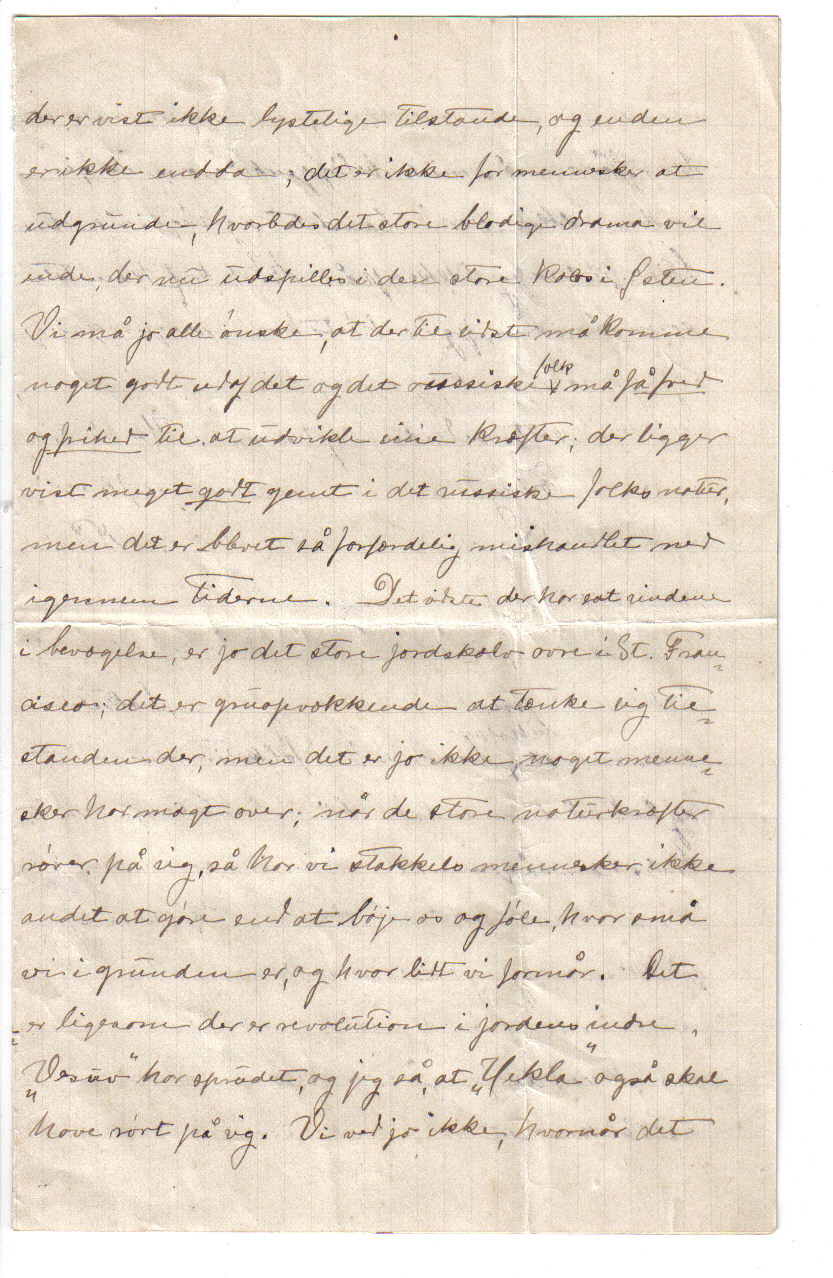 der er vist ikke lystelige tilstande, og enden
er ikke endda; det er ikke for mennesker at
udgrunde, hvorledes det store blodige drama vil
ende, der nu udspilles i den store Kolos i Østen.
Vi må jo alle ønske, at der til sidst må komme
noget godt ud af det og det russiske folk må få fred
og frihed til at udvikle sine kræfter; der ligger
vist meget godt gemt i det russiske folks natur,
men det er blevet så forfærdelig mishandlet ned
igennem Tiderne. Det sidste der har sat sindene
i bevægelse, er jo det store jordskælv ovre i St. Fran-
cisco; det er gruopvækkende at tænke sig til-
standen der, men det er jo ikke noget menne-
sker har magt over; når de store naturkræfter
rører på sig, så har vi stakkels mennesker ikke
andet at gøre end at bøje os og føle, hvor små
vi i grunden er, og hvor lidt vi formår. Det
er ligesom der er revolution i jordens indre,
„Vesuv" har sprudet, og jeg så, at „Hekla" også skal
have rørt på sig. Vi ved jo ikke, hvornår det